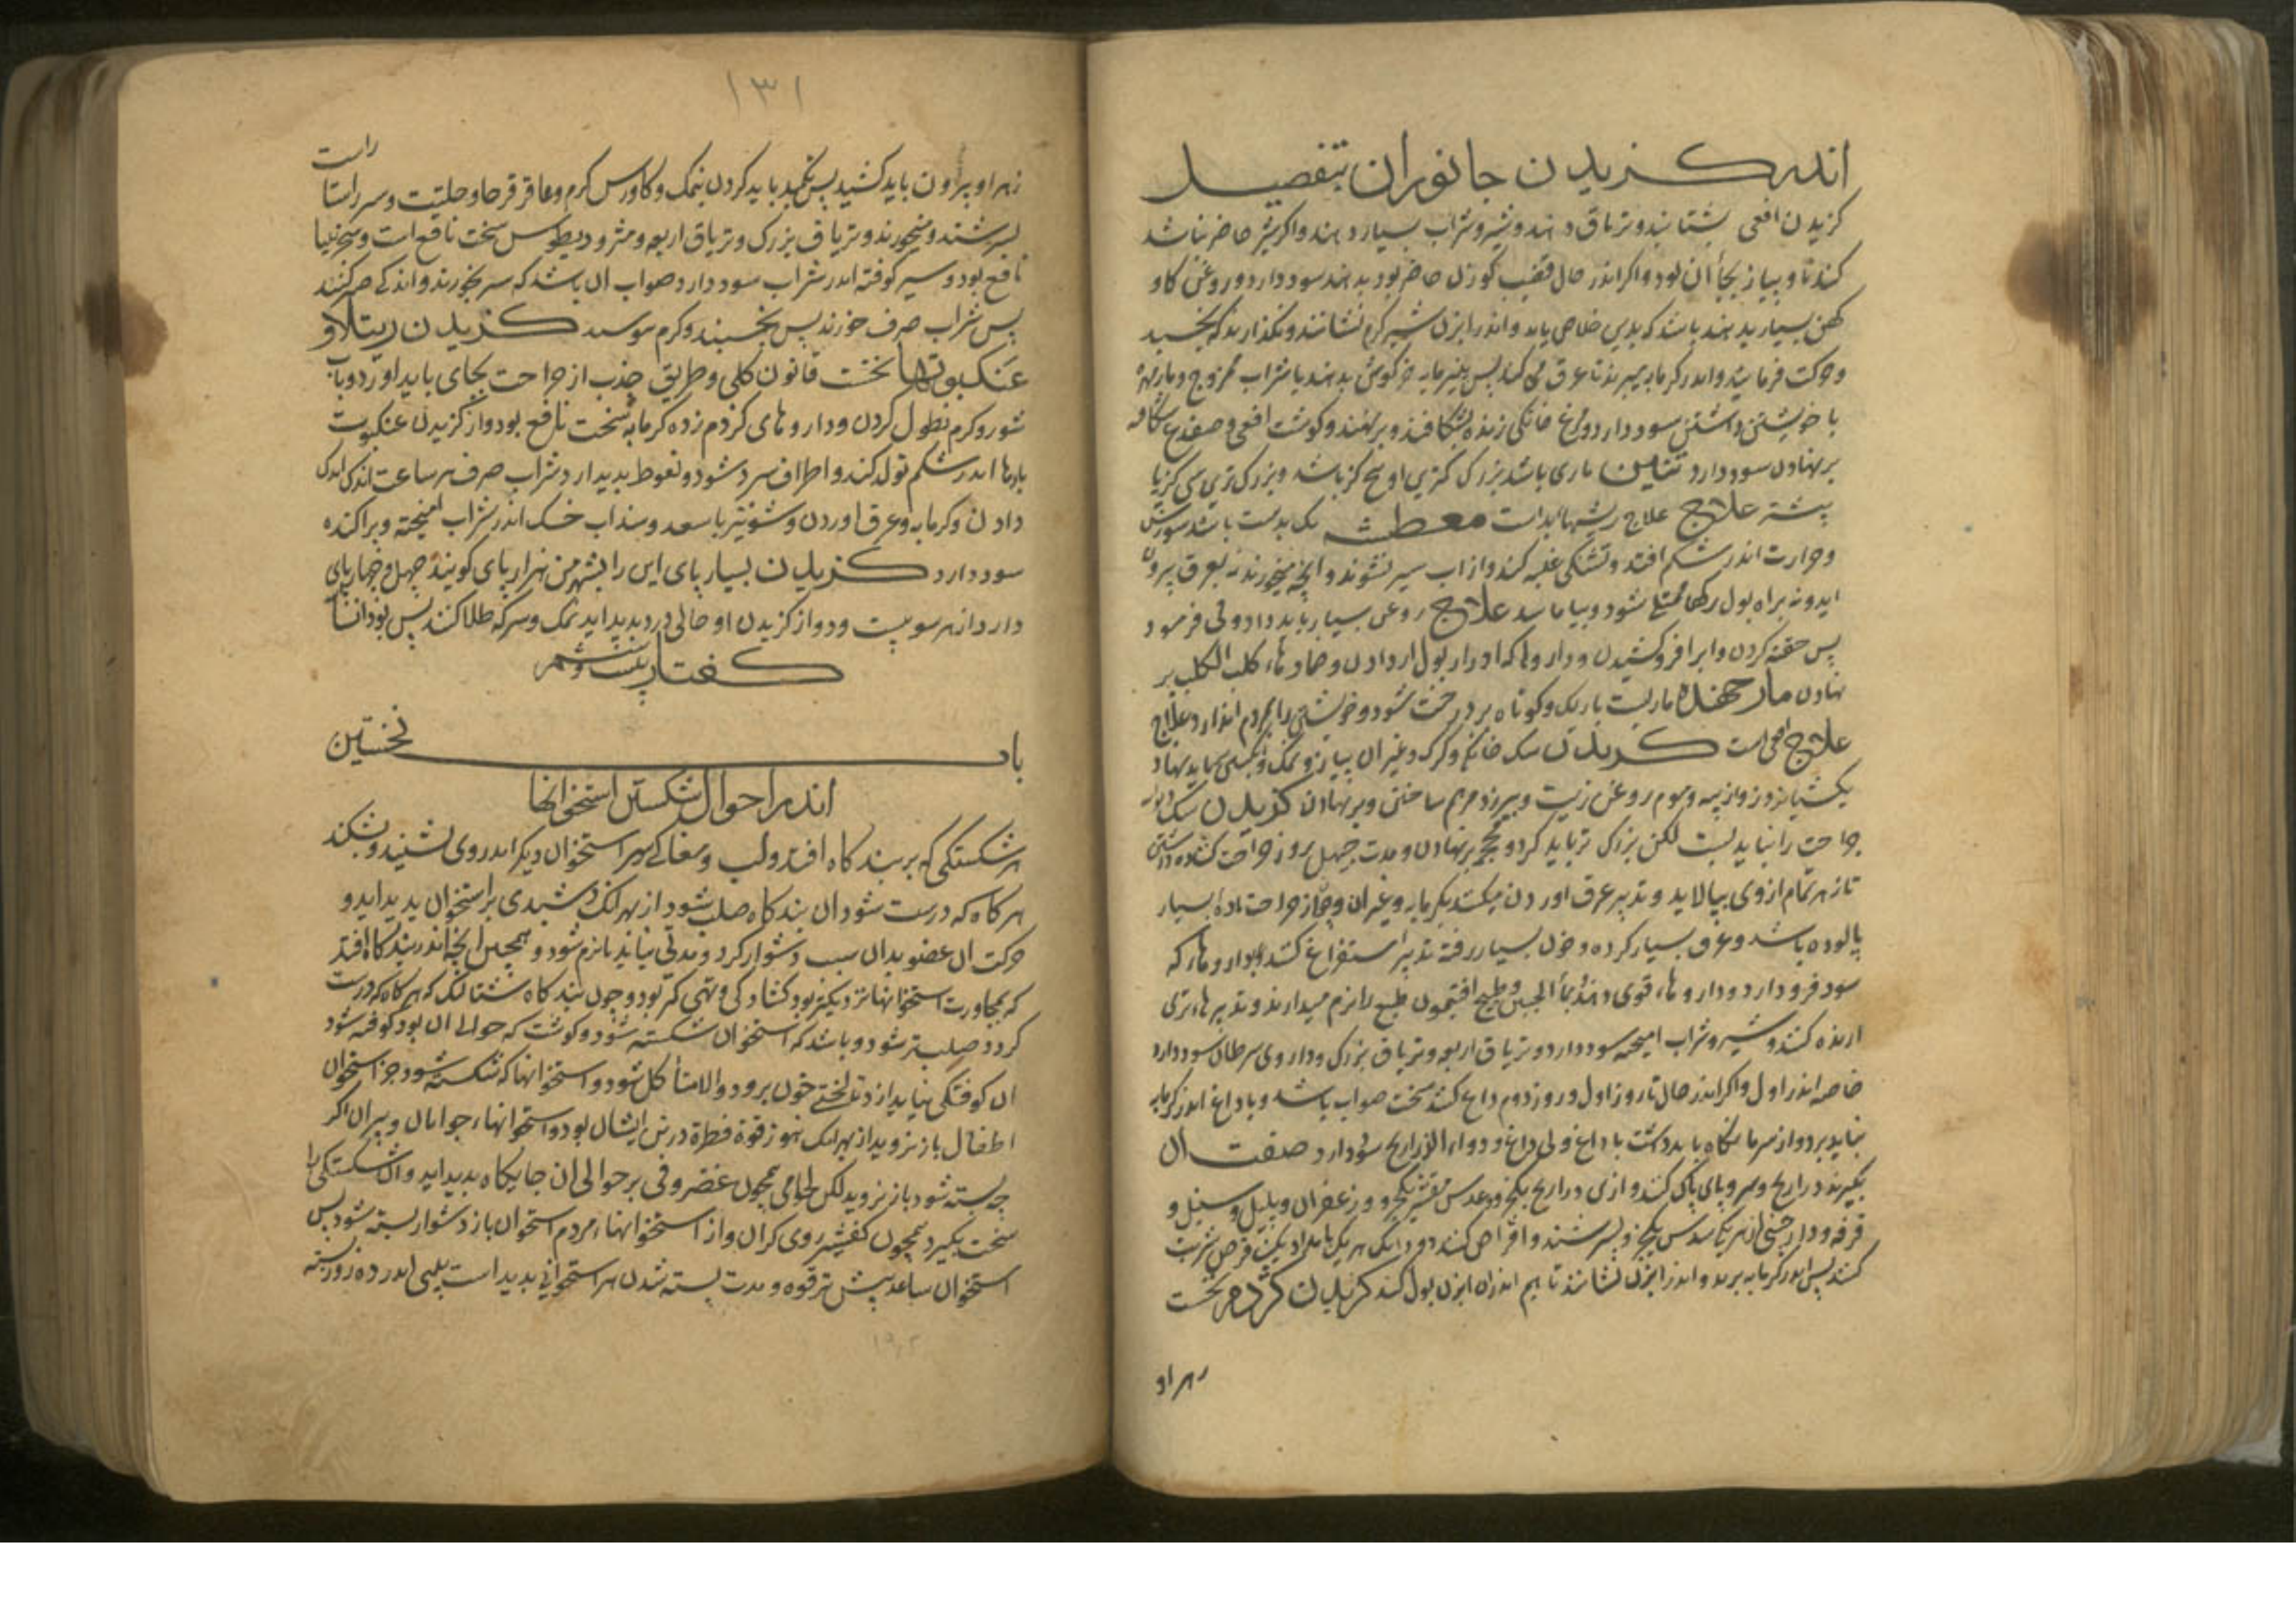 اندر کزیدن جانوران بتفصیل
کزیدن افعی بشتابند و تریاق دهند و شیر و شراب بسیار دهند و اکر شیر حاضر نباشد
کندنا و پیاز بجای آن بود و اکر اندر حال قضیب کوزن حاضر بود بدهند سود دارد و روغن کاو
کهن بسیار بدهند باشد که بدین خلاص یابد و اندر ابزن شیر کرم نشانند و نکذارند که بخسبد
و حرکت فرمایند و اندر کرمابه برند تا عرق کند پس پنیرمایه خرکوش بدهند با شراب ممزوج و مار مهره
با خویشتن داشتن سود دارد و مرغ خانکی زنده بشکافند و برنهند و کوشت افعی و ضفدع شکافته
برنهادن سود دارد تنین ماری باشد بزرک کمترین او پنج کز باشد و بزرک ترین سی کز یا
بیشتر علاج علاج ریشهاء بد است معطشه یک بدست باشد سوزش
و حرارت اندر شکم افتد و تشنکی غلبه کند و از آب سیر نشوند و آنچه میخورند نه بعرق بیرون
اید و نه براه بول رکها ممتلی شود و بیاماسد علاج روغن بسیار باید داد و قی فرمود
پس حقنه کردن و آب را فرو کشیدن و داروئی که ادرار بول آرد دادن و ضمادهاء کلب الکلب بر
نهادن مار جهنده ماریست باریک و کوتاه بر درخت شود و خویشتن را بمردم اندازد علاج
علاج افعی است کزیدن سک خانکی و کرک و غیر آن پیاز و نمک و انکبین بباید نهاد
یکشبانروز و از پیه و موم و روغن زیت و بیرزد مرهم ساختن و برنهادن کزیدن سک دیوانه
جراحت را نباید بست لکن بزرک تر باید کرد و محجمه برنهادن و مدت چهل روز جراحت کشاده داشتن
تا زهر تمام از وی بپالاید و تدبیر عرق آوردن میکند بکرمابه و غیر آن و چون از جراحت ماده بسیار
پالوده باشد و عرق بسیار کرده و خون بسیار رفته تدبیر استفراغ کنند بداروهاء که
سودا فرود آرد و داروهاء قوی دهند و ماء الجبن و طبیخ افتیمون طبع را نرم میدارند و تدبیرهاء تری
ارنده کنند و شیر و شراب آمیخته سود دارد و تریاق اربعه و تریاق بزرک و داروی سرطان سود دارد
خاصه اندر اول و اکر اندر حال تا روز اول و روز دوم داغ کنند سخت صواب باشد و با داغ اندر کرمابه
نباید برد و از سرما نکاه باید داشت با داغ و بی داغ و دواء الذراریح سود دارد صفت آن
بکیرند ذراریح و سر و پای پاک کنند و ازین ذراریح یکجزو و عدس مقشر یکجزو و زعفران و پلپل و سنبل و
قرنفل و دارچینی از هر یک سدس یکجزو بسرشند و اقراص کنند دو دانک هر یک بامداد یک قرص شربت
کنند پس اندر کرمابه برند و اندر ابزن نشانند تا هم اندران ابزن بول کند کزیدن کژدم نخست
زهر او
۱۳۱
راست
زهر او بیرون باید کشید پس تکمید باید کردن بنمک و کاورس کرم و عاقرقرحا و حلتیت و سیر راستا
بسرشند و میخورند و تریاق بزرک و تریاق اربعه و مثرودیطوس سخت نافع است و سجزنیا
نافع بود و سیر کوفته اندر شراب سود دارد و صواب آن باشد که سیر بخورند و اندکی صبر کنند
پس شراب صرف خورند پس بخسبند و کرم بپوشند کزیدن رتیلا و
عنکبوتها نخست قانون کلی و طریق جذب از جراحت بجای باید آورد و بآب
شور و کرم نطول کردن و داروهای کژدم زده کرمابه سخت نافع بود و از کزیدن عنکبوت
بادها اندر شکم تولد کند و اطراف سرد شود و نعوظ پدید آرد شراب صرف هر ساعت اندک اندک
دادن و کرمابه و عرق آوردن و شونیز با سعد و سذاب خشک اندر شراب آمیخته و پراکنده
سود دارد کزیدن بسیار پای این را بشهر من هزار پای کویند چهل و چهار پای
دارد از هر سو بیست و دو از کزیدن او حالی درد پدید آید نمک و سرکه طلا کنند پس بنوشانند
کفتار بیست و ششم
باب نخستین
اندر احوال شکستن استخوانها
هر شکستکی که بر بندکاه افتد و لب و مغاکی سر استخوان دیکر اندر وی نشیند و بشکند
هر کاه که درست شود آن بندکاه صلب شود از بهر آنک دشبدی بر استخوان پدید آید و
حرکت آن عضو بدان سبب دشوار کردد و مدتی بباید تا نرم شود و همچنین آنچه اندر بندکاه افتد
که بمجاورت استخوانها نزدیکتر بود کشادکی و تهی کم بود و چون بندکاه شتالنک که هر کاه که درست
کردد صلبتر شود و باشد که استخوان شکسته شود و کوشت که حوالی آن بود کوفته شود
آن کوفتکی بباید ازدن تا لختی خون برود و الا متأکل شود و استخوانها که شکسته شود جز استخوان
اطفال باز نروید از بهر آنک هنوز قوة فطرة در تن ایشان بود و استخوانهاء جوانان و پیران اکر
چه بسته شود باز نروید لکن لحامی همچون غضروفی بر حوالی آن جایکاه پدید آید و آن شکستکی را
سخت بکیرد همچون کفشیر روی کران و از استخوانهاء مردم استخوان بازو دشوار بسته شود پس
استخوان ساعد پیش ترقوه و مدت بسته شدن هر استخوانی پدید است بینی اندر ده روز بسته